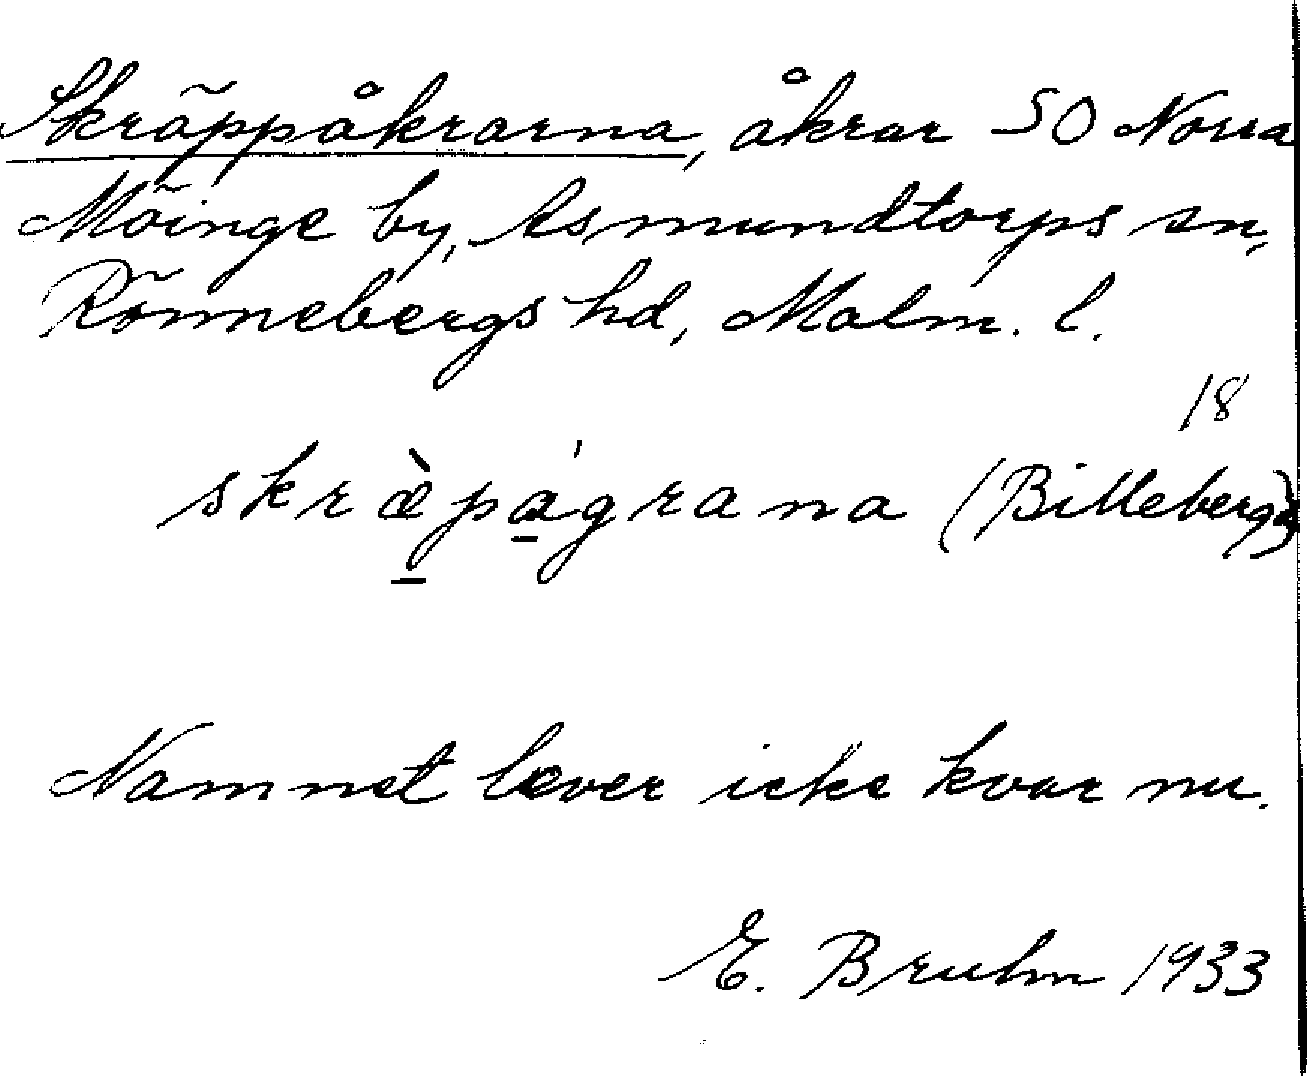 Skräppåkrarna, åkrar SO Norra
Möinge by, Asmundtorps sn,
Rönnebergs hd, Malm. l.
18
skræ̀pågrana (Billeberga)
Namnet lever icke kvar nu.
E. Bruhn 1933